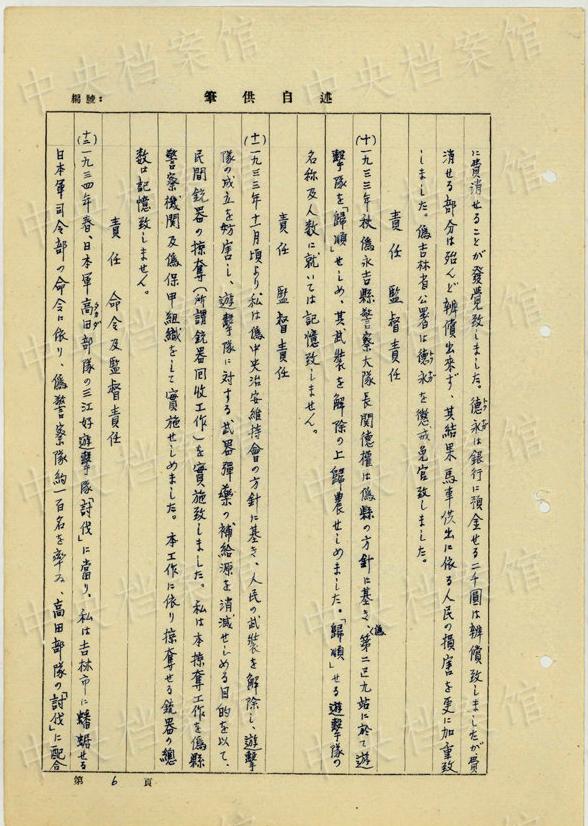 編號：
筆供自述
に費消せることが發覺致しました。德永は銀行に預金せる二千圓は辨償致しましたが費
消せる部分は殆んど辨償出來ず、其結果馬車供出に依る人民の損害を更に加重致
しました。僞吉林省公署は德永を懲戒免官致しました。
責任　監督責任
(十)一九三三年秋僞永吉縣警察大隊長関德權は僞縣の方針に基き、第二區九站に於て遊
擊隊を「歸順」せしめ、其武裝を解除の上歸農せしめました。「歸順」せる遊擊隊の
名称及人数に就いては記憶致しません。
責任　監督責任
(十一)一九三三年十一月頃より私は僞中央治安維持會の方針に基き、人民の武裝を解除し、遊擊
隊の成立を妨害し、遊擊隊に対する武器彈藥の補給源を消滅せしめる目的を以て、
民間銃器の掠奪(所謂銃器回收工作)を實施致しました。私は本掠奪工作を僞縣
警察機関及僞保甲組織をして實施せしめました。本工作に依り掠奪せる銃器の總
数は記憶致しません。
責任　命令及監督責任
(十二)一九三四年春、日本軍高田部隊の三江好遊擊隊「討伐」に當り、私は吉林市に蟠踞せる
日本軍司令部の命令に依り、僞警察隊約一百名を率み、高田部隊の「討伐」に配合
第 6 頁
中央档案馆